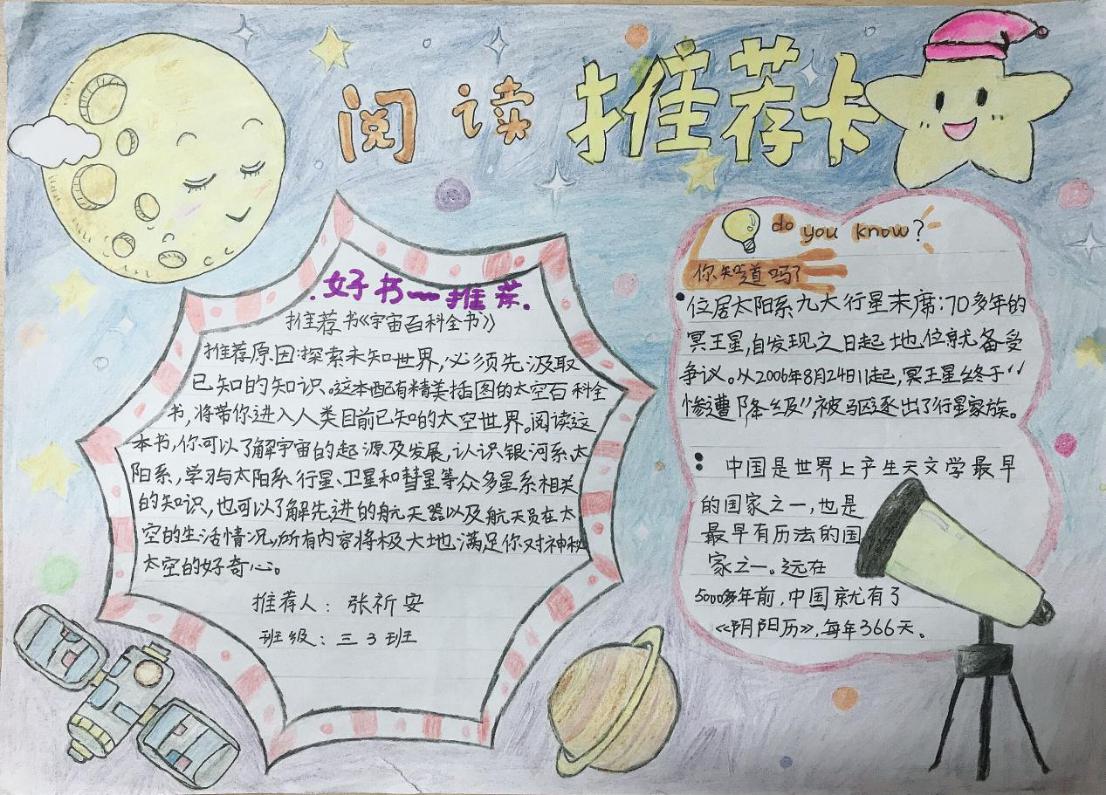 阅读推荐卡
好书推荐.
推荐书《宇宙百科全书》
推荐原因:探索未知世界,必须先汲取
已知的知识。这本配有精美插图的太空百科全
书,将带你进入人类目前已知的太空世界。阅读这
本书,你可以了解宇宙的起源及发展,认识银河系、太
阳系,学习与太阳系、行星、卫星和彗星等众多星系相关
的知识,也可以了解先进的航天器以及航天员在太
空的生活情况,所有内容将极大地满足你对神秘
太空的好奇心。
推荐人:张祈安
班级:三3班
do you know?
你知道吗?
位居太阳系九大行星末席:70多年的
冥王星,自发现之日起地位就备受
争议。从2006年8月24日11起,冥王星终于“
惨遭降级”,被驱逐出了行星家族。
中国是世界上产生天文学最早
的国家之一,也是
最早有历法的国
家之一。远在
5000多年前,中国就有了
《阴阳历》,每年366天。